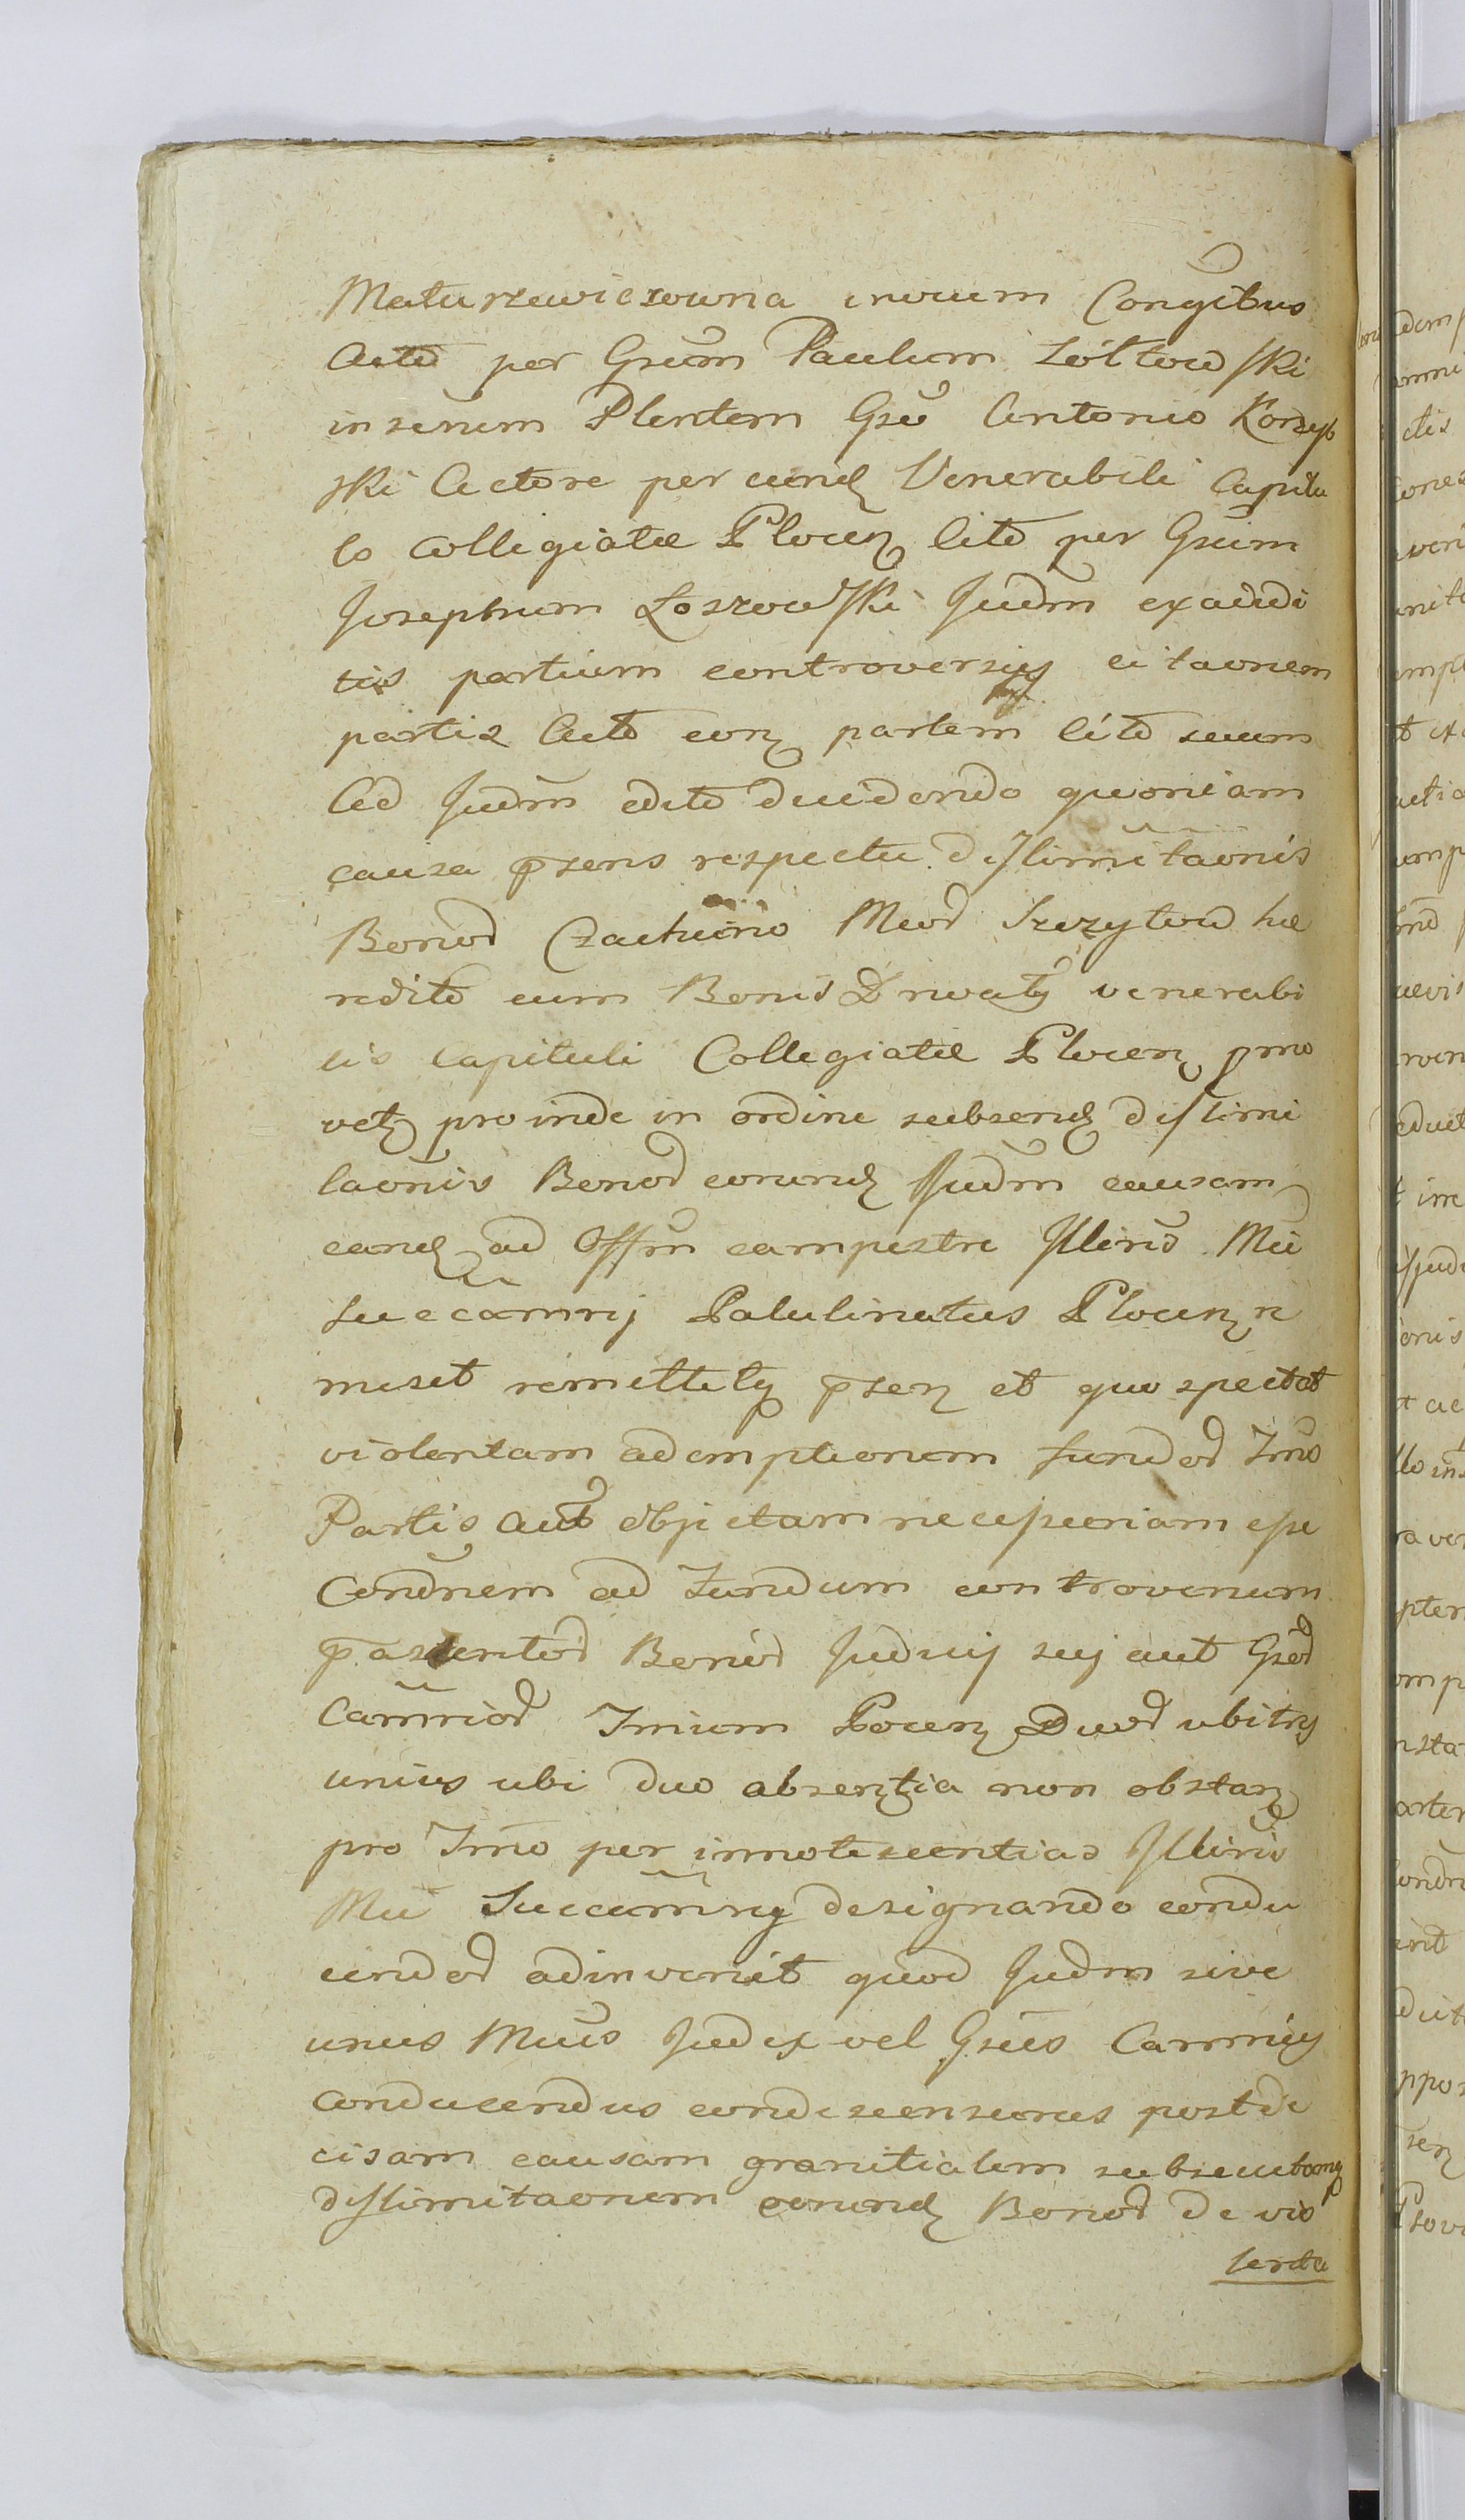 Maturzewiczowna invicem Congibus
Acto per Gsum Paulum Zółtowski
in senum Plentem Gso Antonio Korzyb
ski Actore per eund Venerabili Capitu
lo Collegiatæ Plocen Cito per Gsum
Josephum Łoszowski Judm exaudi
tis partium controversijs citaonem
partis Acto con partem Cito suum
Ad Judm edito ducidendo quoniam
causa psens respectu dislimitaonis
Bonod Czachowo Meod Szczytow hæ
redito cum Bonis Drwały venerabi
lis Capituli Collegiatæ Plocen pmo
vet proinde in ordine subsend dislimi
taonis Bonod eorund Judm causam
eand ad Offm campestre Illeris Mci
Succamrij Palatinatus Plocen re
misit remittitq psen et quo spectat
violentam ademptionem fundod Tmo
Partis Acto objectam necipeeriam esse
Condnem ad Fundum controversum
passentod Bonod Judicij sui aut Gsod
Camriod Tmium Plocen Duod ubi trs
unius ubi duo absentia non obstan
pro Tmo per innotescentias Illeris
Mci Succamrij designando condu
cendod adinvenit quod Judm sive
unus Mcus Judex vel Gsus Camrius
conducendus condescensurus post de
cisam causam granitialem subsecutamq
dislimitaonem eorund Bonod de vio
lenta